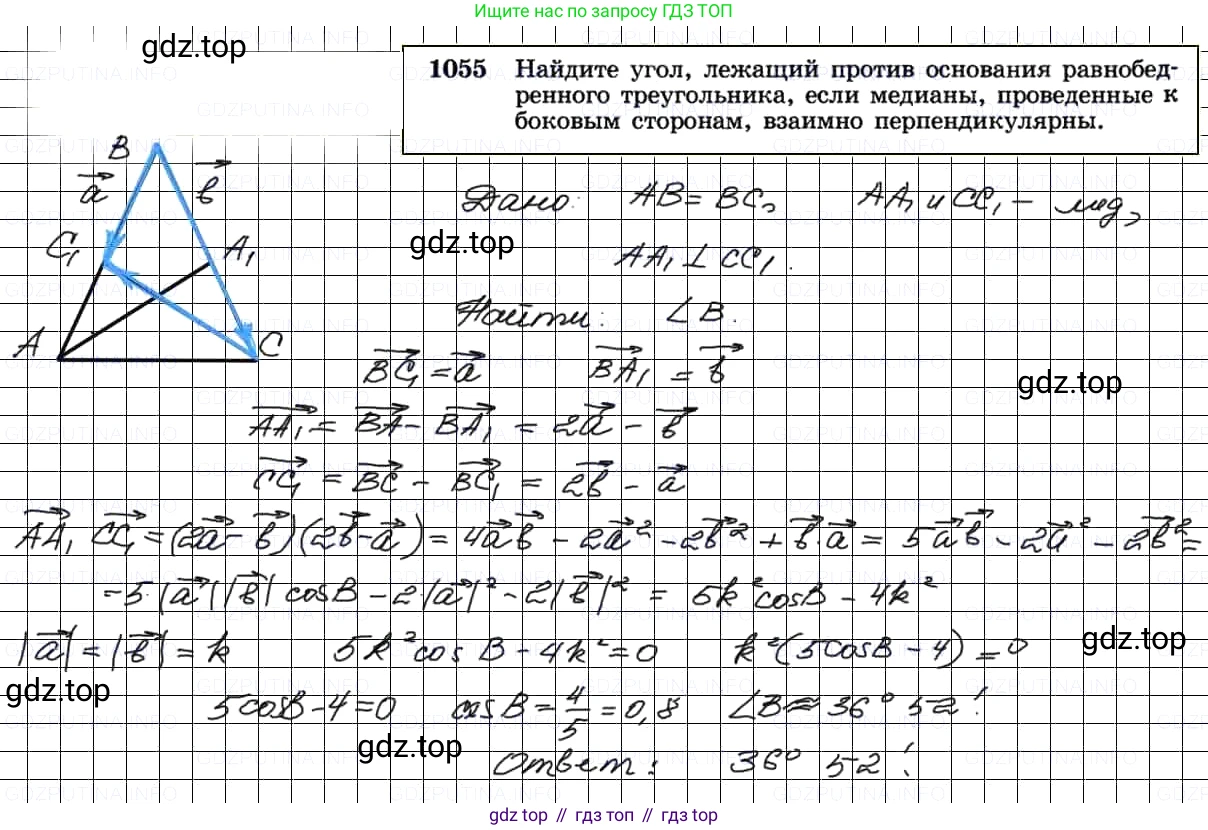 Ищите нас по запросу ГДЗ ТОП
gdz.top
1055 Найдите угол, лежащий против основания равнобед-
ренного треугольника, если медианы, проведенные к
боковым сторонам, взаимно перпендикулярны.
B
a⃗ b⃗
C₁ A₁
A C
Дано: AB = BC, AA₁ и CC₁ – мед,
gdz.top
AA₁ ⊥ CC₁.
Найти: ∠B.
BC₁⃗ = a⃗ BA₁⃗ = b⃗
gdz.top
AA₁⃗ = BA⃗ - BA₁⃗ = 2a⃗ - b⃗
CC₁⃗ = BC⃗ - BC₁⃗ = 2b⃗ - a⃗
AA₁⃗ CC₁⃗ = (2a⃗ - b⃗)(2b⃗ - a⃗) = 4a⃗b⃗ - 2a⃗² - 2b⃗² + b⃗·a⃗ = 5a⃗b⃗ - 2a⃗² - 2b⃗² =
= 5·|a⃗||b⃗| cosB - 2·|a⃗|² - 2|b⃗|² = 5k²cosB - 4k²
|a⃗| = |b⃗| = k 5k²cosB - 4k² = 0 k²(5cosB - 4) = 0
gdz.top
gdz.top
5cosB - 4 = 0 cosB = 4/5 = 0,8 ∠B ≈ 36° 52'
gdz.top
Ответ: 36° 52'
gdz top // гдз топ // gdz top